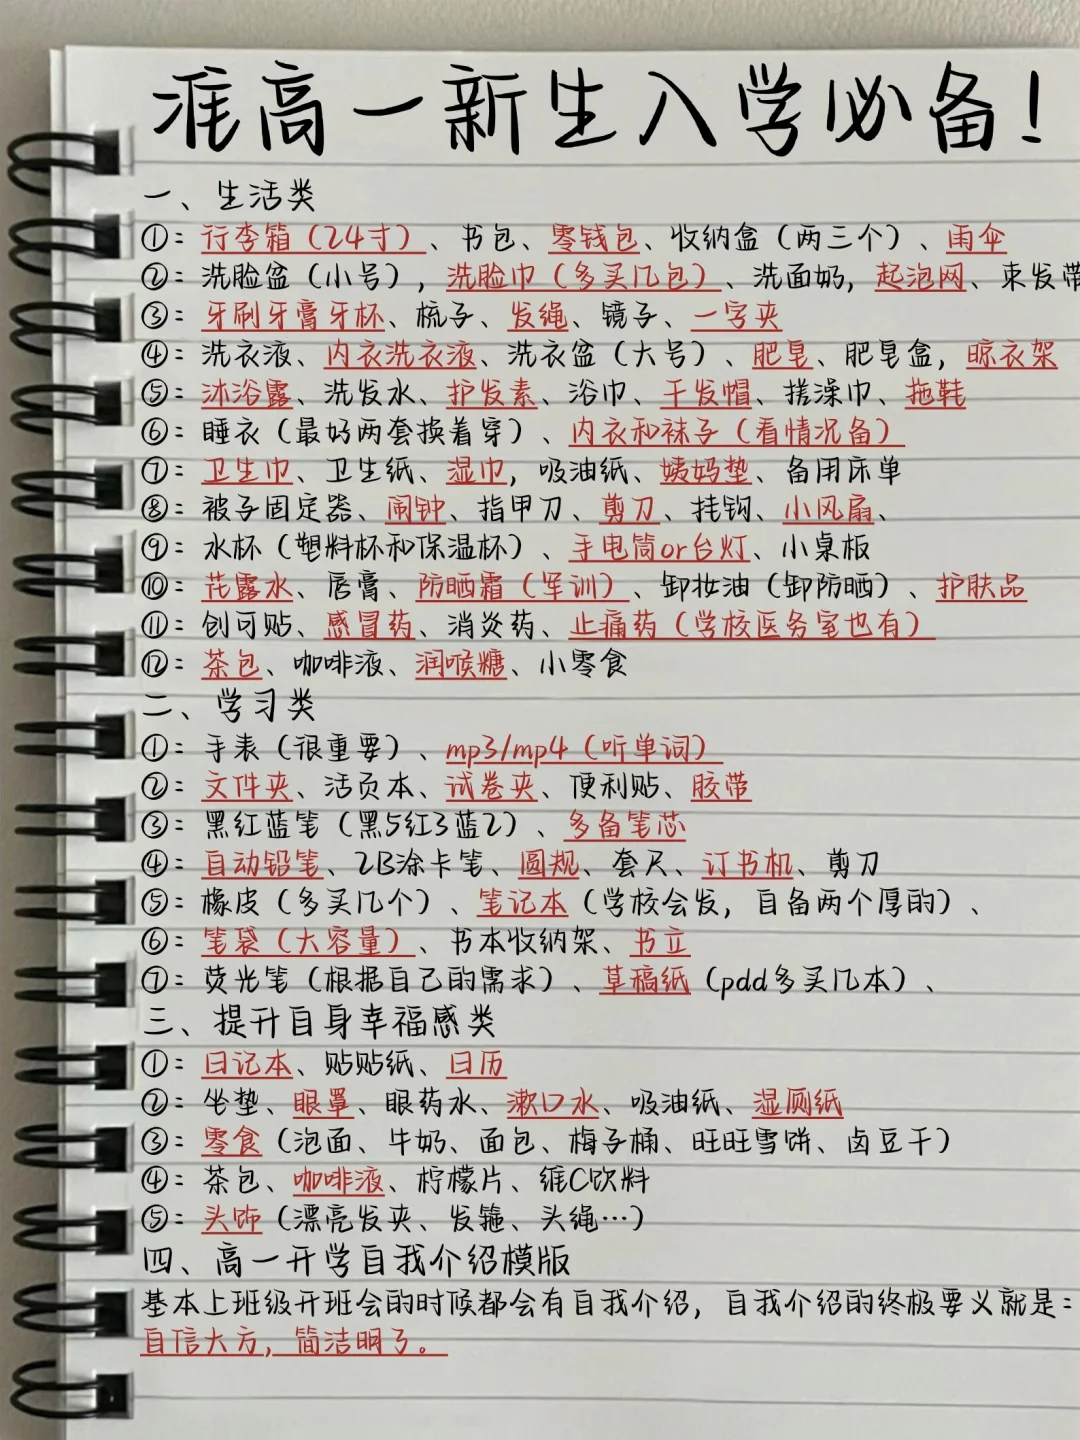 准高一新生入学必备!
一、生活类
①：行李箱（24寸）、书包、零钱包、收纳盒（两三个）、雨伞
②：洗脸盆（小号），洗脸巾（多买几包）、洗面奶，起泡网、束发带
③：牙刷牙膏牙杯、梳子、发绳、镜子、一字夹
④：洗衣液、内衣洗衣液、洗衣盆（大号）、肥皂、肥皂盒，晾衣架
⑤：沐浴露、洗发水、护发素、浴巾、干发帽、搓澡巾、拖鞋
⑥：睡衣（最好两套换着穿）、内衣和袜子（看情况备）
⑦：卫生巾、卫生纸、湿巾，吸油纸、姨妈垫、备用床单
⑧：被子固定器、闹钟、指甲刀、剪刀、挂钩、小风扇、
⑨：水杯（塑料杯和保温杯）、手电筒or台灯、小桌板
⑩：花露水、唇膏、防晒霜（军训）、卸妆油（卸防晒）、护肤品
⑪：创可贴、感冒药、消炎药、止痛药（学校医务室也有）
⑫：茶包、咖啡液、润喉糖、小零食
二、学习类
①：手表（很重要）、mp3/mp4（听单词）
②：文件夹、活页本、试卷夹、便利贴、胶带
③：黑红蓝笔（黑5红3蓝2）、多备笔芯
④：自动铅笔、2B涂卡笔、圆规、套尺、订书机、剪刀
⑤：橡皮（多买几个）、笔记本（学校会发，自备两个厚的）、
⑥：笔袋（大容量）、书本收纳架、书立
⑦：荧光笔（根据自己的需求）、草稿纸（pdd多买几本）、
三、提升自身幸福感类
①：日记本、贴贴纸、日历
②：坐垫、眼罩、眼药水、漱口水、吸油纸、湿厕纸
③：零食（泡面、牛奶、面包、梅子桶、旺旺雪饼、卤豆干）
④：茶包、咖啡液、柠檬片、维C饮料
⑤：头饰（漂亮发夹、发箍、头绳…）
四、高一开学自我介绍模版
基本上班级开班会的时候都会有自我介绍，自我介绍的终极要义就是：
自信大方，简洁明了。